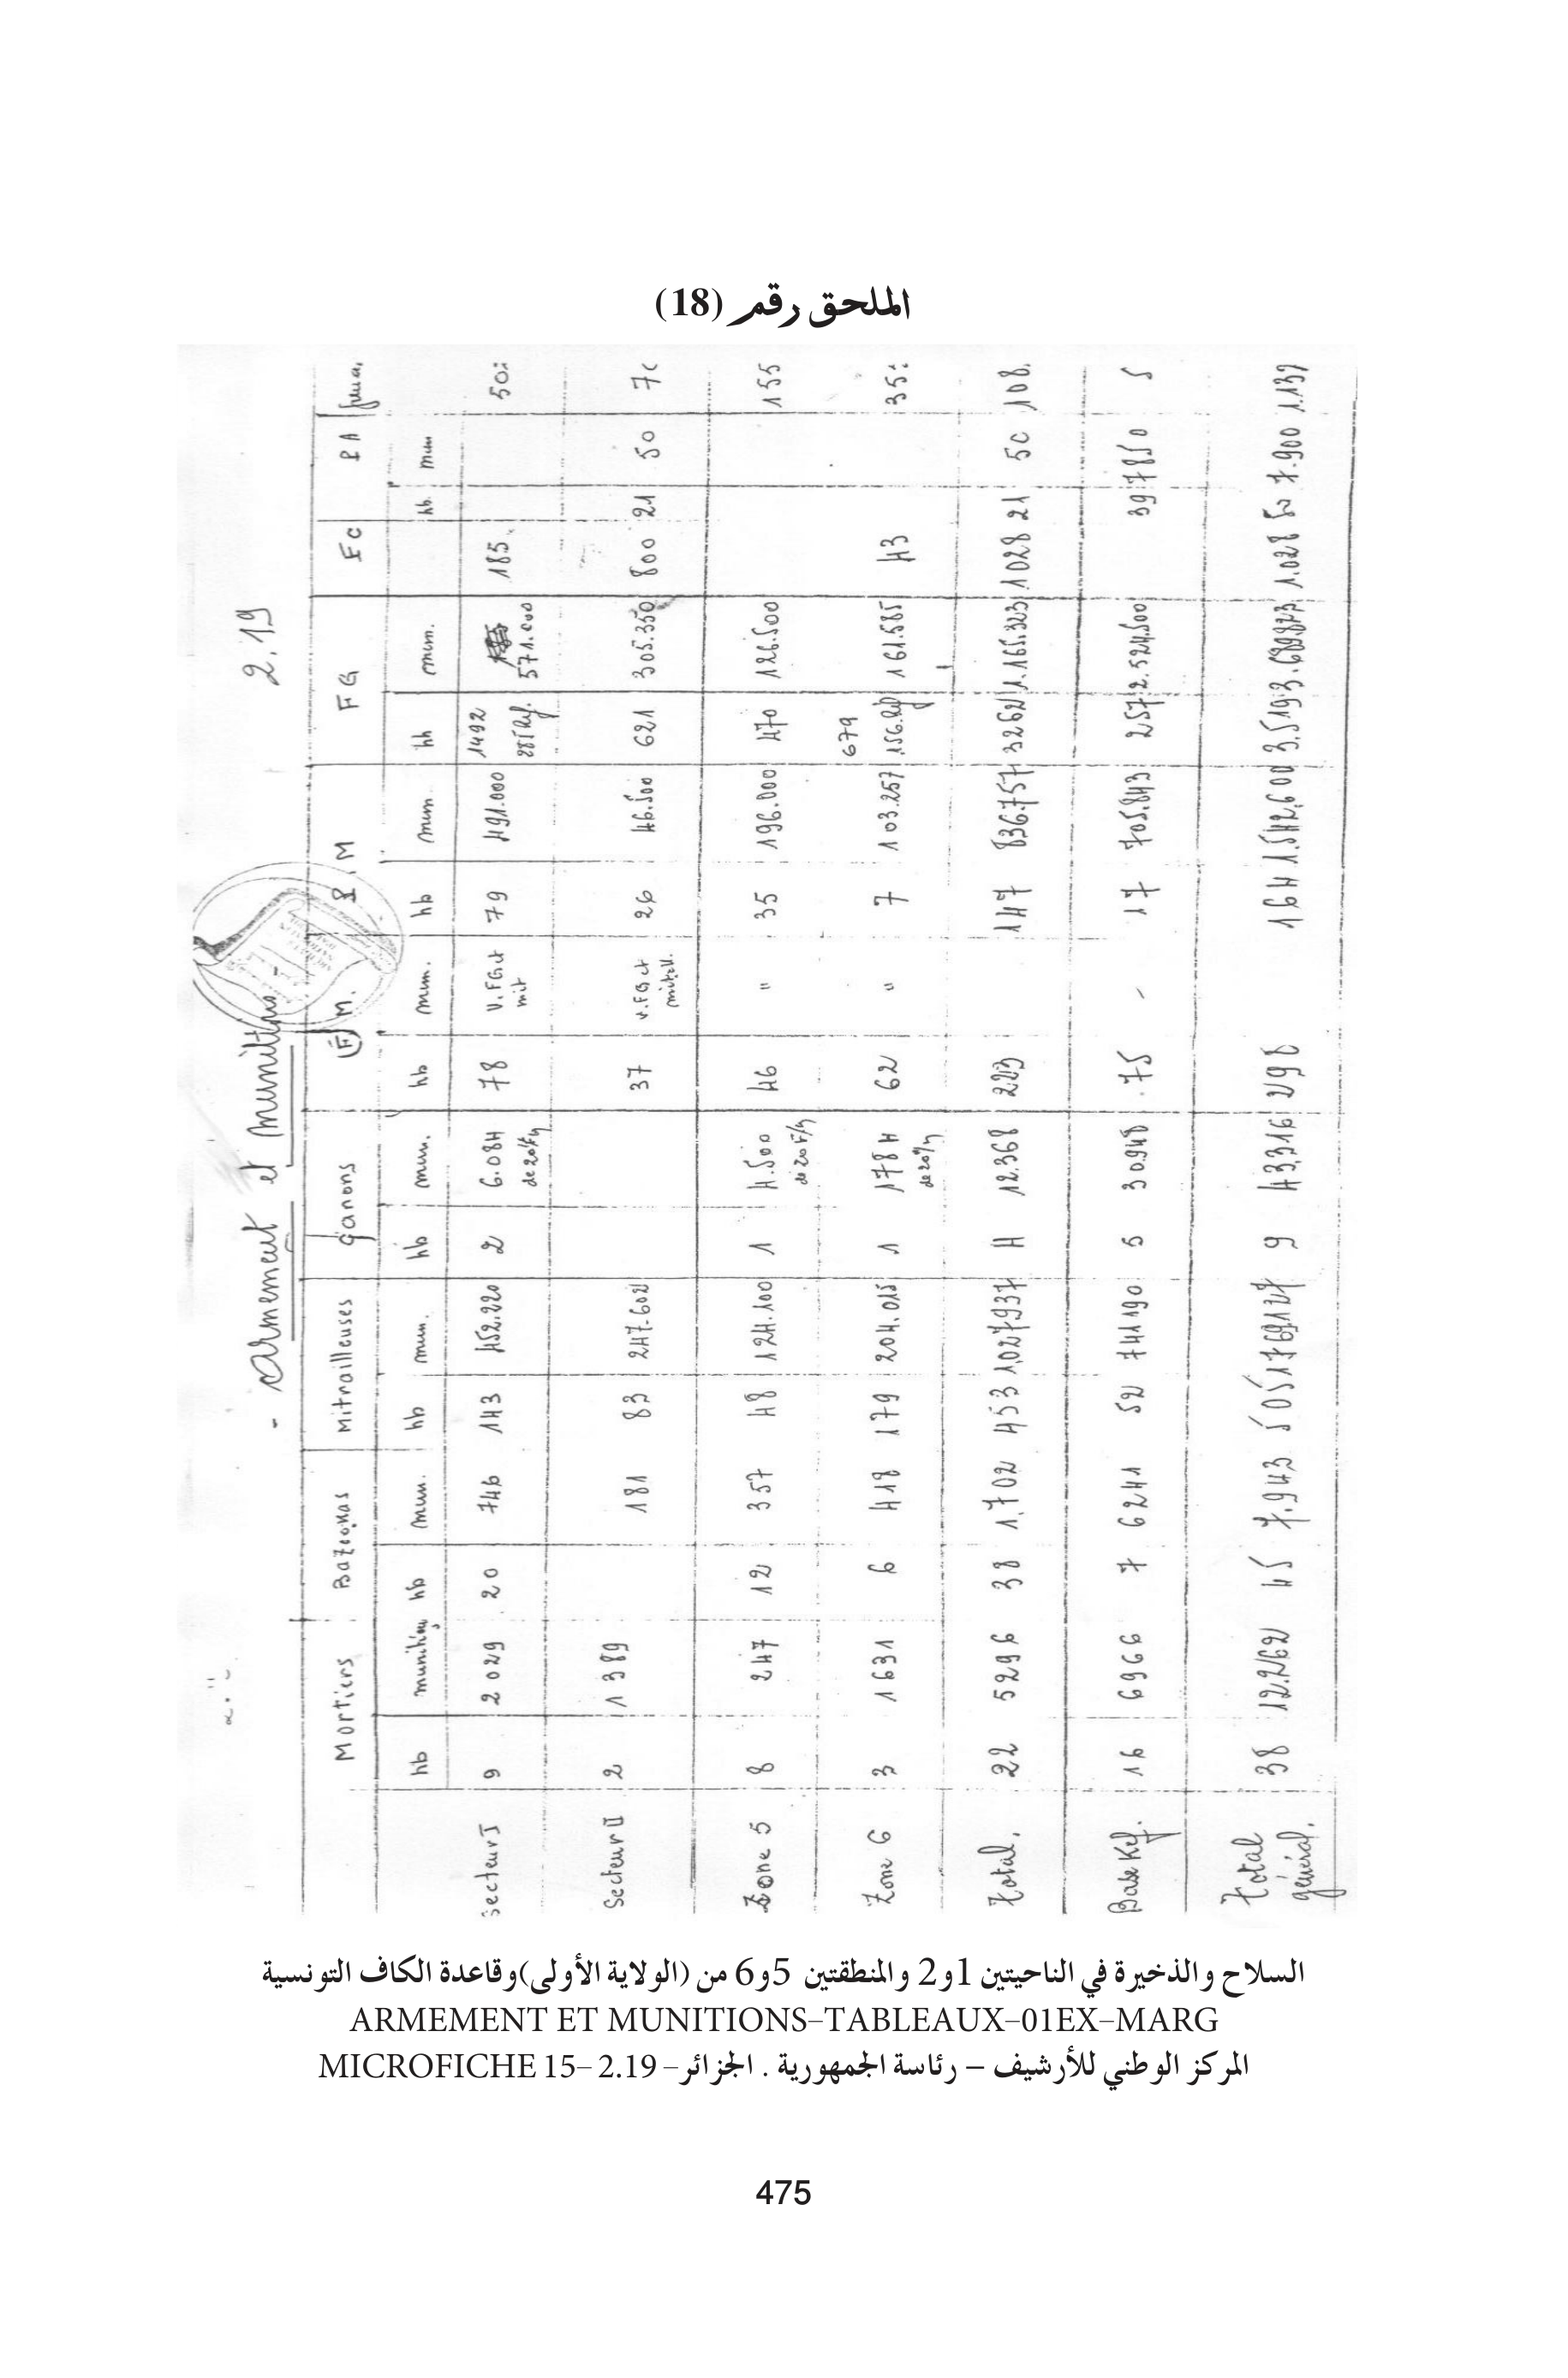 الملحق رقم (18)
2.19
- Armement et munitions -
Mortiers Bazookas Mitrailleuses Canons F M. P.M FG Ec PA
hb munitions hb mun. hb mun. hb mun. hb mun. hb mun. hb mun. hb. mun
Secteur I 9 2029 20 746 143 452.220 2 6.084 78 V. FG et mit 79 491.000 1492 571.000 185
Secteur II 2 1389 181 83 247.602 37 v. FG et mitraill. 26 46.500 621 305.350 800 21 50
Zone 5 8 247 12 357 48 124.100 1 4.500 46 " 35 196.000 470 126.500 155
Zone 6 3 1631 6 418 179 204.015 1 1784 62 " 7 103.257 679 161.585 43
Total. 22 5296 38 1.702 453 1.027937 4 12.368 223 147 836.757 3262 1.165.323 1028 21 50 108.
Base Kef. 16 6966 7 6241 52 741190 5 30948 75 - 17 705.843 257 2.524.500 39 7850 5
Total général. 38 12.262 45 7.943 505 1769127 9 43.316 298 164 1.542.600 3.519 1.028 60 7.900 1.139
السلاح والذخيرة في الناحيتين 1و2 والمنطقتين 5و6 من (الولاية الأولى)وقاعدة الكاف التونسية
ARMEMENT ET MUNITIONS–TABLEAUX–01EX–MARG
المركز الوطني للأرشيف – رئاسة الجمهورية . الجزائر– MICROFICHE 15– 2.19
475